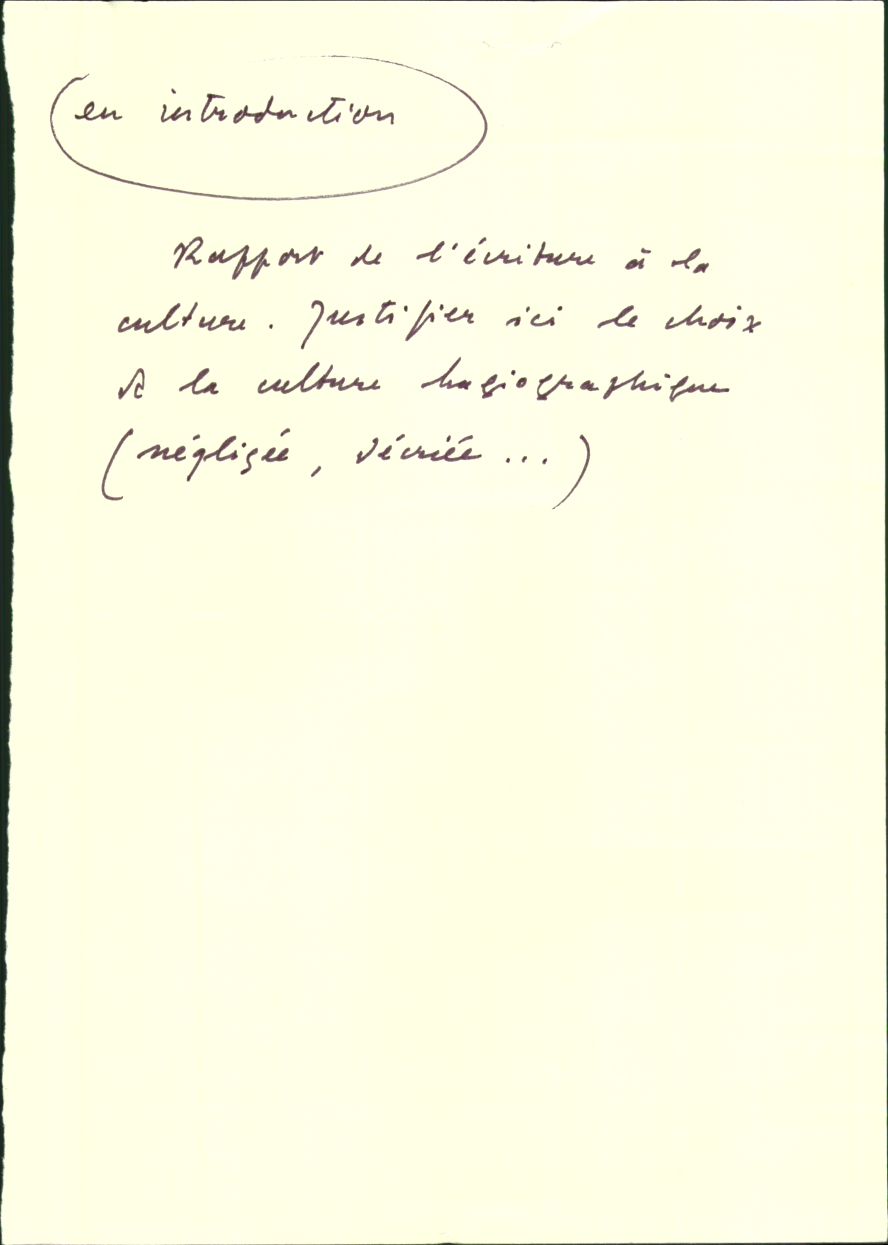 en introduction
Rapport de l'écriture à la
culture. Justifier ici le choix
de la culture hagiographique
(négligée, décriée ...)